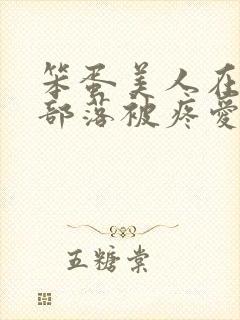 笨蛋美人在
部落被疼愛
五糖棠